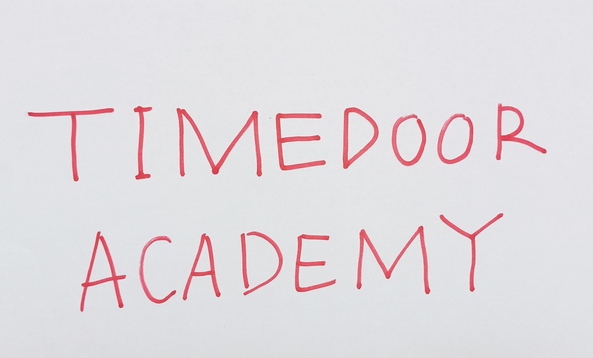 TIMEDOOR
ACADEMY